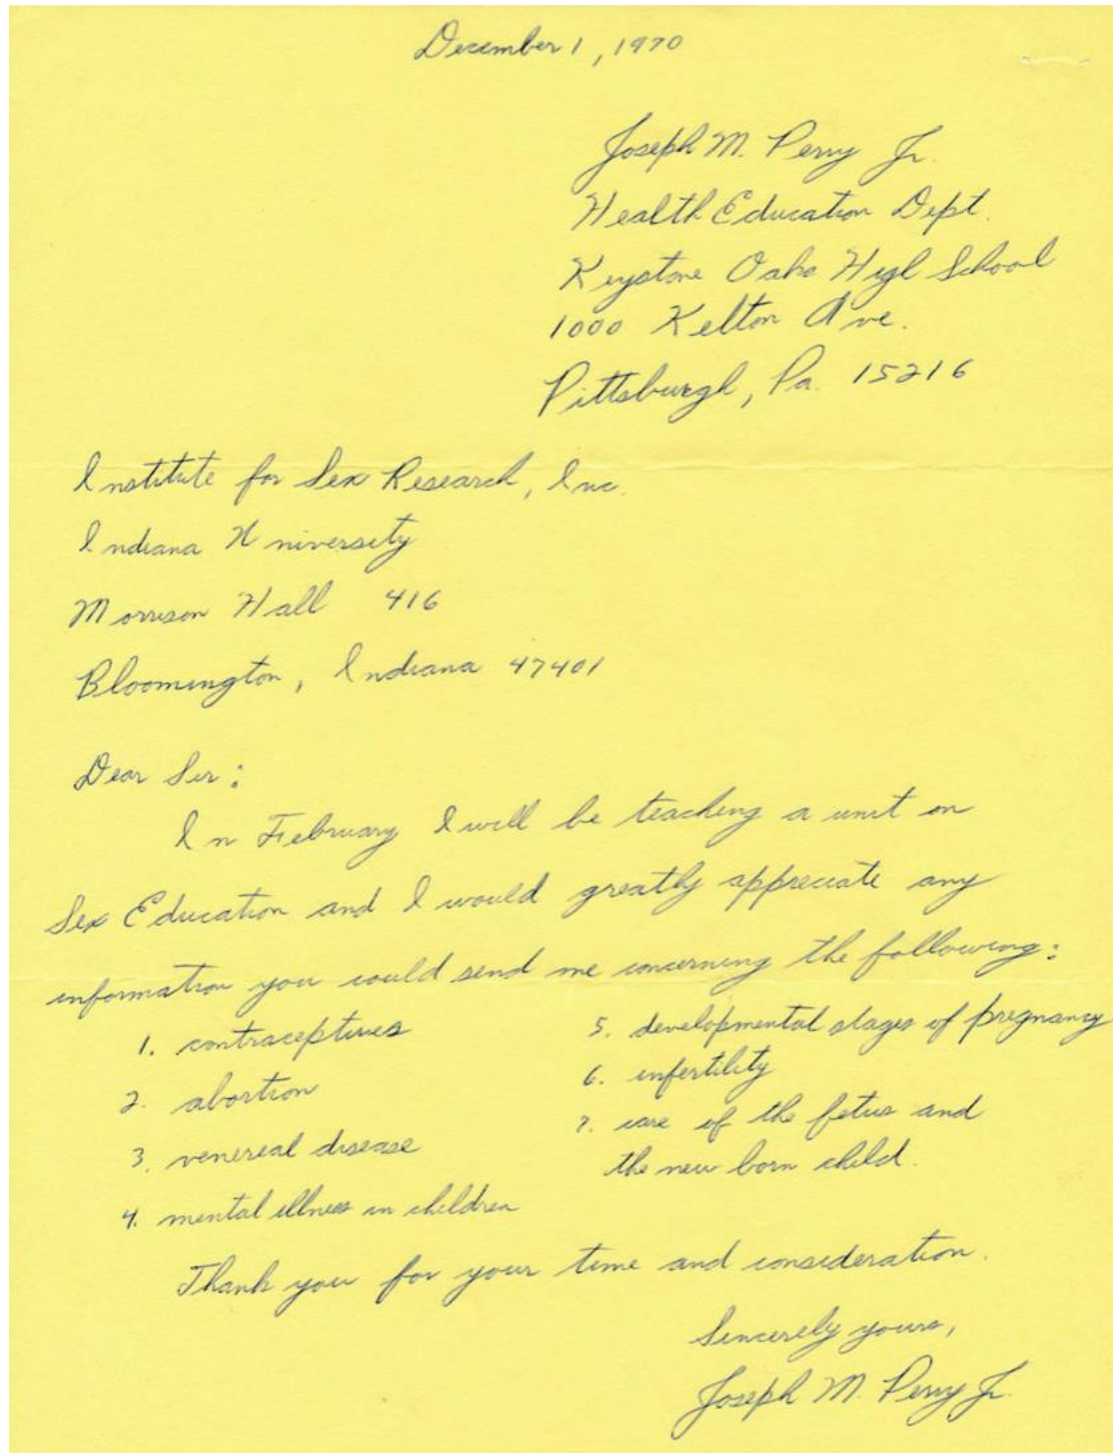 December 1, 1970
Joseph M. Perry Jr.
Health Education Dept.
Keystone Oaks High School
1000 Kelton Ave.
Pittsburgh, Pa. 15216
Institute for Sex Research, Inc.
Indiana University
Morrison Hall 416
Bloomington, Indiana 47401
Dear Sir:
In February I will be teaching a unit on
Sex Education and I would greatly appreciate any
information you could send me concerning the following:
1. contraceptives
2. abortion
3. venereal disease
4. mental illness in children
5. developmental stages of pregnancy
6. infertility
7. care of the fetus and
the new born child.
Thank you for your time and consideration.
Sincerely yours,
Joseph M. Perry Jr.